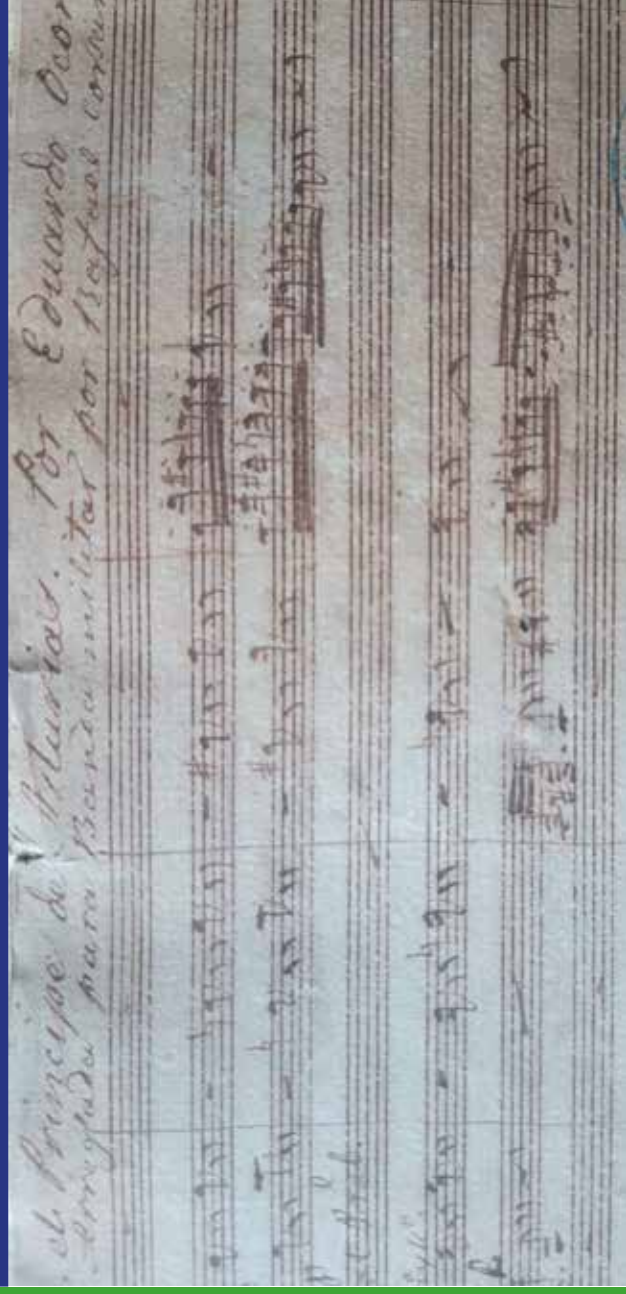 el Principe de Asturias. Por Eduardo Ocon
Arreglada para Banda militar por Rafael